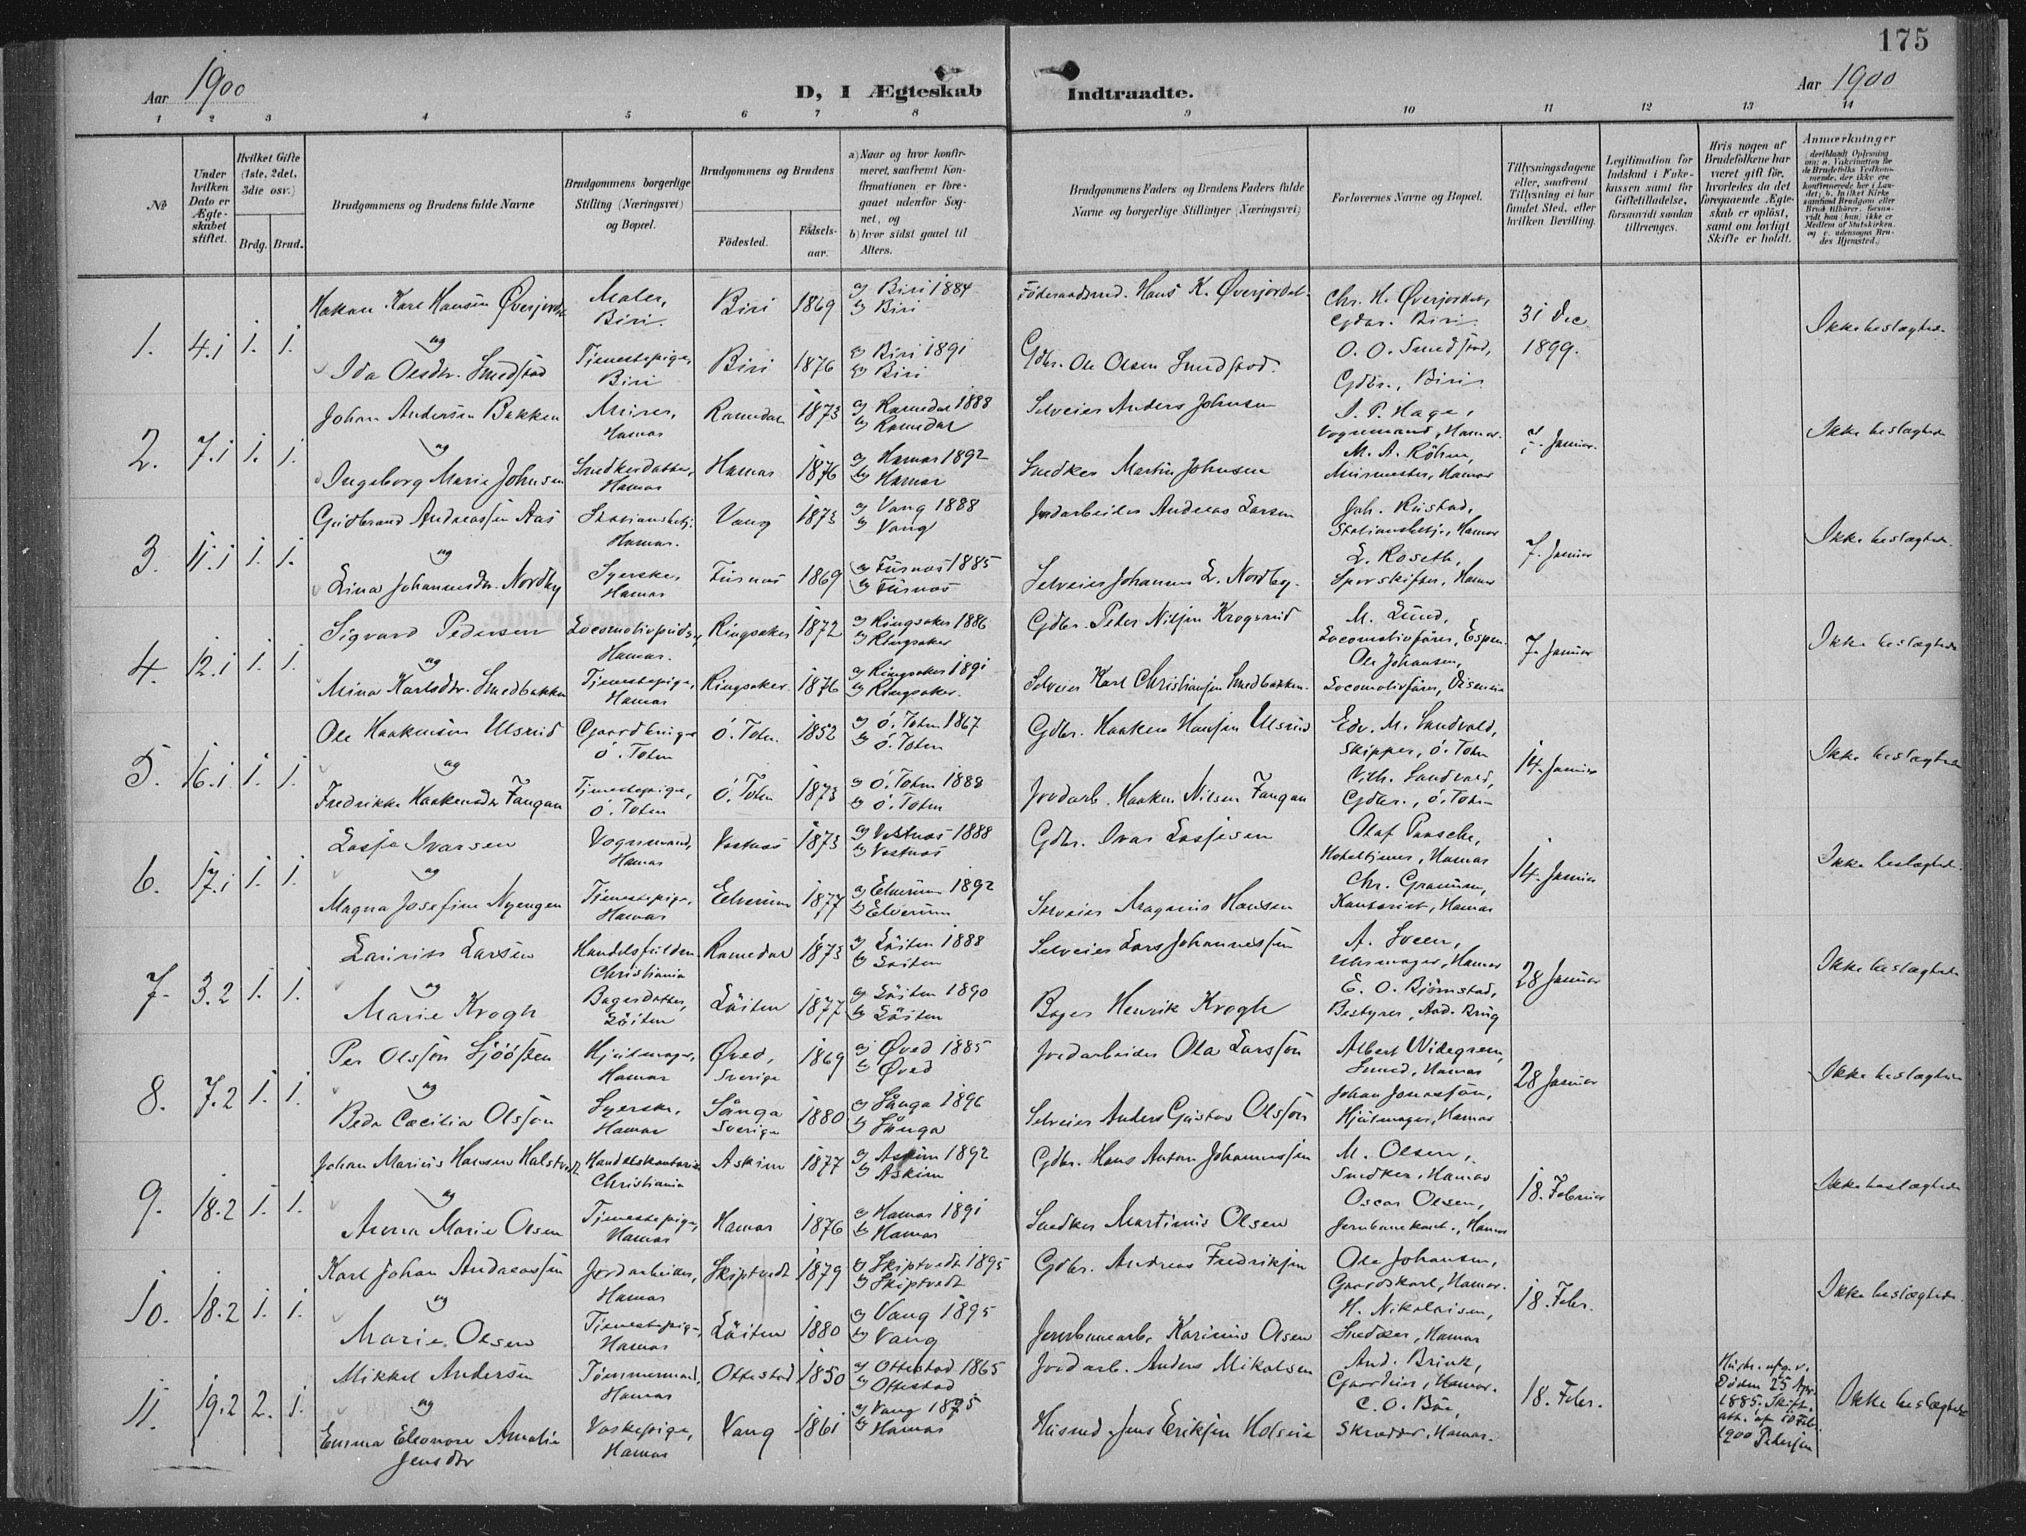 175
Aar 1900
D, I Ægteskab Indtraadte.
Aar 1900
1 2 3 4 5 6 7 8 9 10 11 12 13 14
No
Under hvilken Dato er Ægteskabet stiftet.
Hvilket Gifte (1ste, 2det, 3die osv.)
Brdg. Brud.
Brudgommens og Brudens fulde Navne
Brudgommens borgerlige Stilling (Næringsvei) og Bopæl.
Brudgommens og Brudens
Fødested.
Fødselsaar.
a) Naar og hvor konfirmeret, saafremt Konfirmationen er foregaaet udenfor Sognet, og
b) hvor sidst gaaet til Alters.
Brudgommens Faders og Brudens Faders fulde Navne og borgerlige Stillinger (Næringsvei)
Forlovernes Navne og Bopæl.
Tillysningsdagene eller, saafremt Tillysning ei har fundet Sted, efter hvilken Bevilling.
Legitimation for Indskud i Enkekassen samt for Giftetilladelse, forsaavidt saadan tiltrænges.
Hvis nogen af Brudefolkene har været gift før, hvorledes da det foregaaende Ægteskab er opløst, samt om lovligt Skifte er holdt.
Anmærkninger
1. 4.1 1. 1.
Hakon Karl Hansen Øverjordet Maler, Biri. Biri 1869 a) Biri 1884 b) Biri Føderaadsmd. Hans K. Øverjordet. Chr. H. Øverjordet, Gdbr. Biri 31 Dec 1899. Ikke beslægtede
og
Ida Olsdtr. Smedstad Tjenestepige, Biri Biri 1876 a) Biri 1891 b) Biri Gdbr. Ole Olsen Smedstad. O. O. Smedstad, Gdbr., Biri
2. 7.1 1. 1.
Johan Andersen Bakken Murer, Hamar Romedal 1873 a) Romedal 1888 b) Romedal Selveier Anders Johnsen J. P. Hage, Vognmand, Hamar. 7. Januar. Ikke beslægtede
og
Ingeborg Marie Johnsen Snedkerdatter, Hamar Hamar 1876 a) Hamar 1892 b) Hamar Snedker Martin Johnsen M. A. Röhm, Murmester, Hamar
3. 11.1 1. 1.
Gudbrand Andreassen Aas Stationsbetj. Hamar. Vang 1873 a) Vang 1888 b) Vang Jordarbeider Andreas Larsen Joh. Rustad, Stationsbetj., Hamar 7. Januar Ikke beslægtede.
og
Lina Johannesdtr. Nordby Syerske, Hamar Furnæs 1869 a) Furnæs 1885 b) Furnæs Selveier Johannes L. Nordby. L. Roseth, Sporskifter, Hamar
4. 12.1 1. 1.
Sigvard Pedersen Locomotivpudser, Hamar. Ringsaker 1872 a) Ringsaker 1886 b) Ringsaker Gdbr. Peder Nilsen Krogsrud M. Lund, Locomotivfører, Espen. 7. Januar Ikke beslægtede
og
Mina Karlsdtr. Smedbakken Tjenestepige, Hamar Ringsaker. 1876 a) Ringsaker 1891 b) Ringsaker. Selveier Karl Christiansen Smedbakken. Ole Johansen, Locomotivfører,
5. 16.1 1. 1.
Ole Haakensen Ulsrud Gaardbruger Ö. Toten Ö. Toten. 1852 a) Ö. Toten 1867 b) Ö. Toten Gdbr. Haaken Hansen Ulsrud Edv. M. Sandvold, Skipper, Ö. Toten 14. Januar Ikke beslægtede
og
Fredrikke Haakensdtr Fangan Tjenestepige, Ö. Toten Ö. Toten 1873 a) Ö. Toten 1888 b) Ö. Toten Jordarb. Haaken Nilsen Fangan Vilh. Sandvold, Gdbr., Ö. Toten
6. 17.1 1. 1.
Lasse Ivarsen Vognmand, Hamar Vestnæs 1873 a) Vestnæs 1888 b) Vestnæs Gdbr. Ivar Lassesen Olaf Paasche, Hoteltjener, Hamar 14. Januar Ikke beslægtede.
og
Magna Josefine Nyengen Tjenestepige, Hamar Elverum 1877 a) Elverum 1892 b) Elverum Selveier Magnus Hansen Chr. Kontorist, Hamar
7. 3.2 1. 1.
Laurits Larsen Handelsfuldm. Christiania Romedal 1873 a) Löiten 1888 b) Löiten Selveier Lars Johannessen A. Sveen, Uhrmager, Hamar 28 Januar Ikke beslægtede
og
Marie Krogh Bagerdatter, Löiten Löiten 1877 a) Löiten 1890 b) Löiten Bager Henrik Krogh E. O. Björnstad, Bestyrer, Aad. Brug
8. 7.2 1. 1.
Per Olsson Sjöösten Hjulmager, Hamar Øved, Sverige 1869 a) Øved 1885 b) Øved Jordarbeider Ola Larsson Albert Widegreen, Smed, Hamar 28 Januar Ikke beslægtede
og
Beda Cæcilia Olsson Syerske, Hamar Sånga Sverige 1880 a) Sånga 1896 b) Sånga Selveier Anders Gustav Olsson Johan Jonasson, Hjulmager, Hamar
9. 18.2 1. 1.
Johan Marius Hansen Halstvedt Handelskontorist Christiania Askim 1877 a) Askim 1892 b) Askim Gdbr. Hans Anton Johannessen M. Olsen, Snedker, Hamar 18. Februar Ikke beslægtede
og
Anna Marie Olsen Tjenestepige, Hamar Hamar 1876 a) Hamar 1891 b) Hamar Snedker Martinus Olsen Oscar Olsen, Jernbanekont., Hamar
10. 18.2 1. 1.
Karl Johan Andreassen Jordarbeider, Hamar Skiptvedt 1879 a) Skiptvedt 1895 b) Skiptvedt Gdbr. Andreas Fredriksen Ole Johansen, Gaardskarl, Hamar. 18. Febr. Ikke beslægtede.
og
Marie Olsen Tjenestepige Hamar Löiten 1880 a) Vang 1895 b) Vang Jernbanearb. Karinius Olsen H. Nikolaisen, Snedker, Hamar
11. 19.2 2. 1.
Mikkel Andersen Tømmermand, Hamar Ottestad 1850 a) Ottestad 1865 b) Ottestad Jordarb. Anders Mikalsen And. Brink, Hamar. 18. Febr. Hustr. afg. v. Døden 25 Apr. 1885. Skift. att. af 10 Feb. 1900 Petersen Ikke beslægtede
og
Emma Eleonore Amalie Jensdtr Vaskepige, Hamar Vang 1861 a) Vang 1875 b) Hamar Husmd. Jens Eriksen Holseie C. O. Bøe, Skrædder, Hamar.